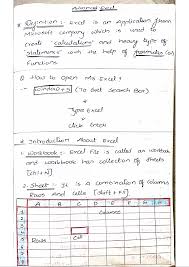 Advanced Excel
* Definition:- Excel is an Application from
Microsoft company which is used to
create "calculations" and heavy type of
"statements" with the help of formulas (or)
Functions.
Q. How to open MS Excel?
Windows+S (To Get Search Box)
↓
Type Excel
↓
Click Enter
* Introduction About Excel
1. Workbook:- Excel File is called an workbook
and workbook has collection of sheets
[ctrl+N]
2. Sheet:- It is a combination of columns
Rows and cells [shift+F11]
A B C D E F G H
1
2
3
4
Columns
Rows
Cell